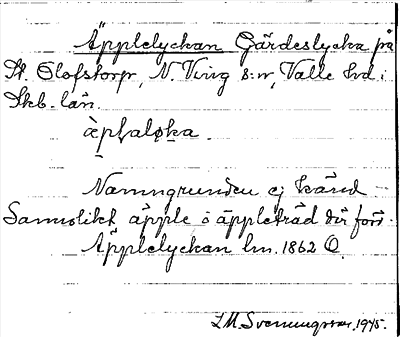 Äpplelyckan Gärdeslycka på
St. Olofstorp, N. Ving s:n, Valle hd i
Skb. län.
äpḷaløka.
Namngrunden ej känd
Sannolikt äpple o äppleträd där förr.
Äpplelyckan lm. 1862 O
I.M. Svenungsson, 1945.